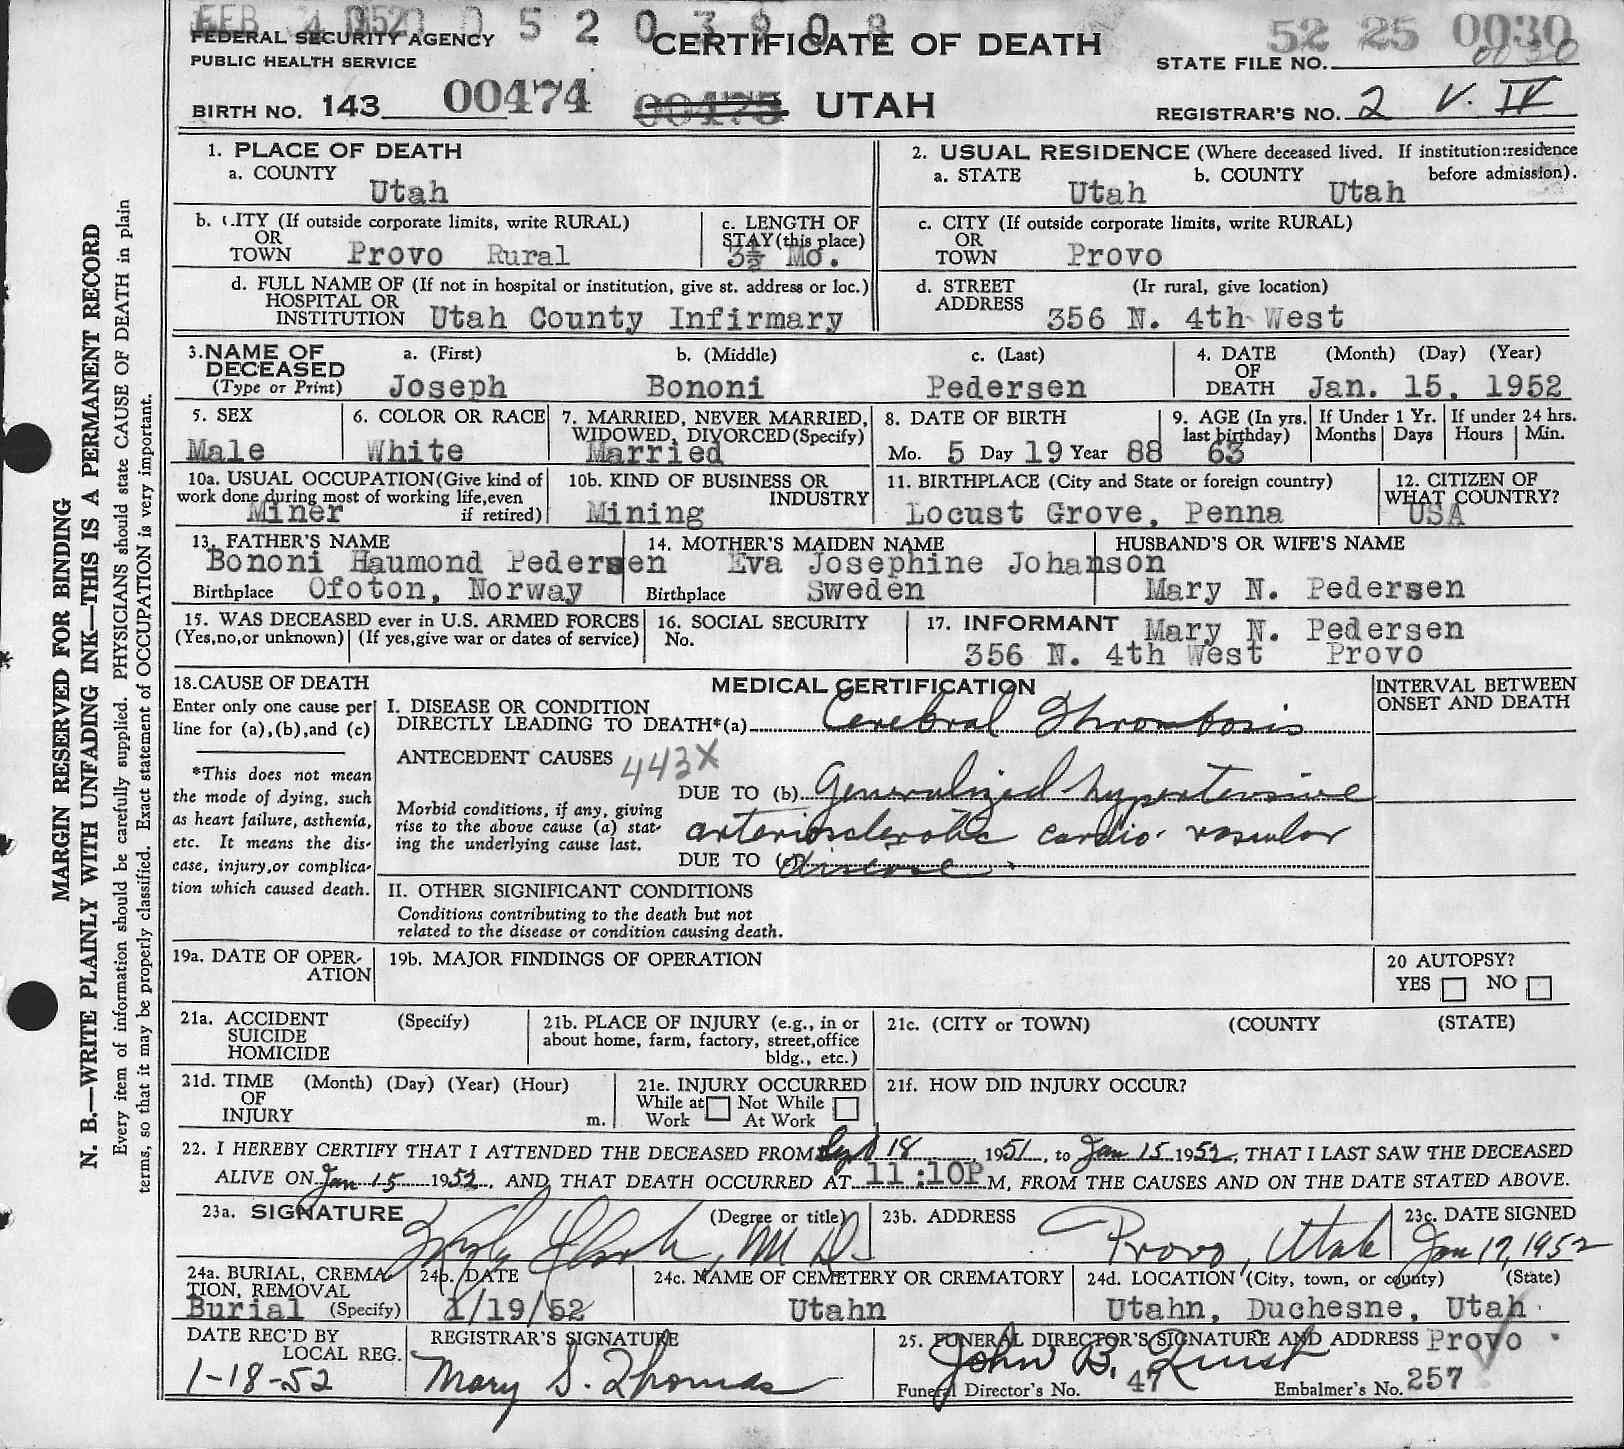 FEB 4 1952 0 5 2 0 3 9 0 8 52 25 0030
FEDERAL SECURITY AGENCY CERTIFICATE OF DEATH 0030
PUBLIC HEALTH SERVICE STATE FILE NO.
BIRTH NO. 143 00474 00475 UTAH REGISTRAR'S NO. 2 V. IV
1. PLACE OF DEATH 2. USUAL RESIDENCE (Where deceased lived. If institution:residence
a. COUNTY a. STATE b. COUNTY before admission).
Utah Utah Utah
b. CITY (If outside corporate limits, write RURAL) c. LENGTH OF c. CITY (If outside corporate limits, write RURAL)
OR STAY (this place) OR
TOWN Provo Rural 3½ Mo. TOWN Provo
d. FULL NAME OF (If not in hospital or institution, give st. address or loc.) d. STREET (Ir rural, give location)
HOSPITAL OR ADDRESS
INSTITUTION Utah County Infirmary 356 N. 4th West
3. NAME OF a. (First) b. (Middle) c. (Last) 4. DATE (Month) (Day) (Year)
DECEASED OF
(Type or Print) Joseph Bononi Pedersen DEATH Jan. 15, 1952
5. SEX 6. COLOR OR RACE 7. MARRIED, NEVER MARRIED, 8. DATE OF BIRTH 9. AGE (In yrs. If Under 1 Yr. If under 24 hrs.
WIDOWED, DIVORCED (Specify) last birthday) Months Days Hours Min.
Male White Married Mo. 5 Day 19 Year 88 63
10a. USUAL OCCUPATION (Give kind of 10b. KIND OF BUSINESS OR 11. BIRTHPLACE (City and State or foreign country) 12. CITIZEN OF
work done during most of working life, even INDUSTRY WHAT COUNTRY?
Miner if retired) Mining Locust Grove, Penna USA
13. FATHER'S NAME 14. MOTHER'S MAIDEN NAME HUSBAND'S OR WIFE'S NAME
Bononi Haumond Pedersen Eva Josephine Johanson
Birthplace Ofoton, Norway Birthplace Sweden Mary N. Pedersen
15. WAS DECEASED ever in U.S. ARMED FORCES 16. SOCIAL SECURITY 17. INFORMANT Mary N. Pedersen
(Yes,no,or unknown) (If yes,give war or dates of service) No. 356 N. 4th West Provo
18. CAUSE OF DEATH MEDICAL CERTIFICATION INTERVAL BETWEEN
Enter only one cause per I. DISEASE OR CONDITION ONSET AND DEATH
line for (a),(b),and (c) DIRECTLY LEADING TO DEATH*(a) Cerebral Thrombosis
ANTECEDENT CAUSES 443X
*This does not mean
the mode of dying, such DUE TO (b) Generalized hypertensive
as heart failure, asthenia, Morbid conditions, if any, giving
etc. It means the dis- rise to the above cause (a) stat- arteriosclerotic cardio-vascular
ease, injury,or complica- ing the underlying cause last. DUE TO (c) disease
tion which caused death. II. OTHER SIGNIFICANT CONDITIONS
Conditions contributing to the death but not
related to the disease or condition causing death.
19a. DATE OF OPER- 19b. MAJOR FINDINGS OF OPERATION 20 AUTOPSY?
ATION YES NO
21a. ACCIDENT (Specify) 21b. PLACE OF INJURY (e.g., in or 21c. (CITY or TOWN) (COUNTY (STATE)
SUICIDE about home, farm, factory, street,office
HOMICIDE bldg., etc.)
21d. TIME (Month) (Day) (Year) (Hour) 21e. INJURY OCCURRED 21f. HOW DID INJURY OCCUR?
OF While at Not While
INJURY m. Work At Work
22. I HEREBY CERTIFY THAT I ATTENDED THE DECEASED FROM Sept 18, 1951, to Jan 15 1952, THAT I LAST SAW THE DECEASED
ALIVE ON Jan 15 1952, AND THAT DEATH OCCURRED AT 11:10P M, FROM THE CAUSES AND ON THE DATE STATED ABOVE.
23a. SIGNATURE (Degree or title) 23b. ADDRESS 23c. DATE SIGNED
M D. Provo, Utah Jan 17, 1952
24a. BURIAL, CREMA- 24b. DATE 24c. NAME OF CEMETERY OR CREMATORY 24d. LOCATION (City, town, or county) (State)
TION, REMOVAL
Burial (Specify) 1/19/52 Utahn Utahn, Duchesne, Utah
DATE REC'D BY REGISTRAR'S SIGNATURE 25. FUNERAL DIRECTOR'S SIGNATURE AND ADDRESS Provo
LOCAL REG. John B.
1-18-52 Mary S. Thomas Funeral Director's No. 47 Embalmer's No. 257
MARGIN RESERVED FOR BINDING
N. B.—WRITE PLAINLY WITH UNFADING INK—THIS IS A PERMANENT RECORD
Every item of information should be carefully supplied. PHYSICIANS should state CAUSE OF DEATH in plain
terms, so that it may be properly classified. Exact statement of OCCUPATION is very important.